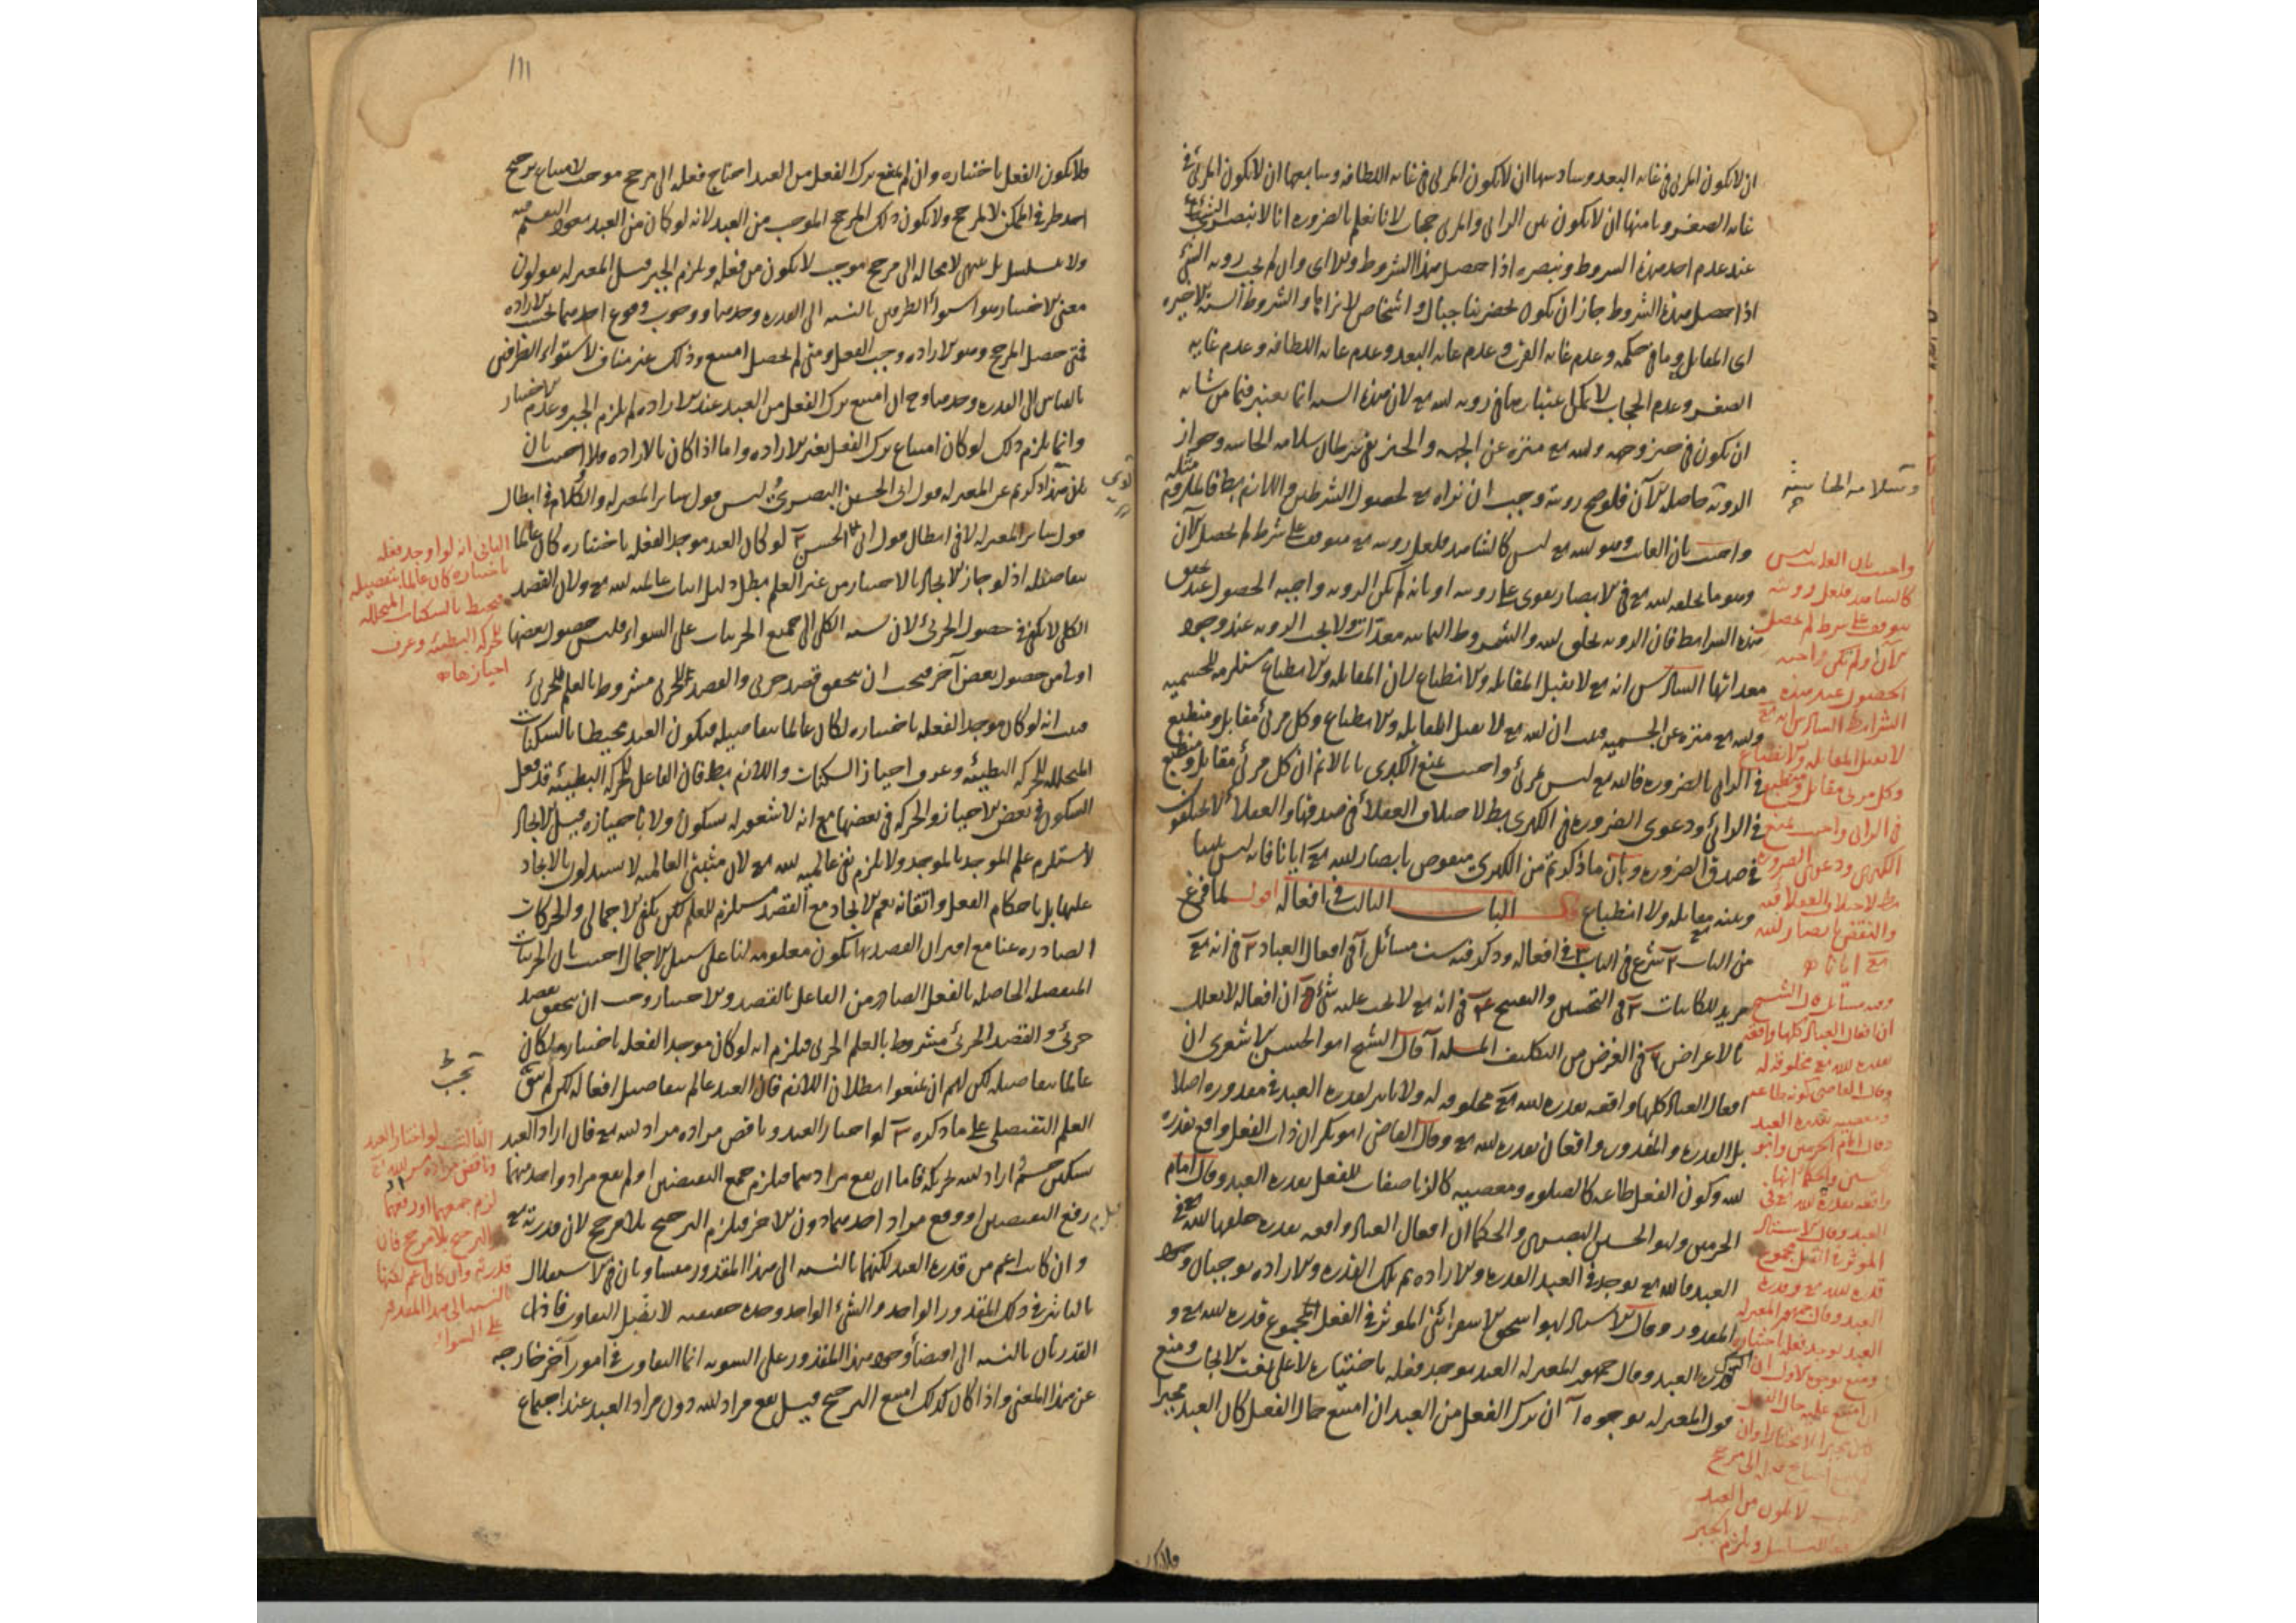 ان لا يكون المرئى فى غاية البعد وسادسها ان لا يكون المرئى فى غاية اللطافة وسابعها ان لا يكون المرئى فى
غاية الصغر وثامنها ان لا يكون بين الرائى والمرئى حجاب لانا نعلم بالضرورة انا لا نبصر الشئ
عند عدم احد هذه الشروط ونبصره اذا حصل هذا الشروط وان لم يجب روية الشئ
اذا حصل هذه الشروط جاز ان يكون بحضرتنا جبال واشخاص لا نراها والشروط الستة الاخيرة
اى المقابلة وما فى حكمه وعدم غاية القرب وعدم غاية البعد وعدم غاية اللطافة وعدم غاية
الصغر وعدم الحجاب لا يمكن اعتبارها فى روية الله تع لان هذه الستة انما يعتبر فيما من شانه
ان يكون فى حيز وجهة والله تع منزه عن الجهة والحيز بقى شرطان سلامة الحاسة وجواز
الروية حاصلة الآن فلو صح رويته وجب ان نراه تع لحصول الشرطين واللازم بط فالملزوم مثله
وسلامة الحاسة
واجيب بان الغائب وهو الله تع ليس كالشاهد فلعل رويته تع متوقف على شرط لم يحصل الآن
وهو ما يخلقه الله تع فى الابصار يقوى على رويته او بانه لم يكن الروية واجبة الحصول عند تحقق
هذه الشرائط فان الروية بخلق الله والشروط الثمانية معدات ولا يجب الروية عند وجود
معداتها السادس انه تع لا يقبل المقابلة والانطباع لان المقابلة والانطباع مستلزمة للجسمية
والله تع منزه عن الجسمية فثبت ان الله تع لا يقبل المقابلة والانطباع وكل مرئى مقابل ومنطبع
فى الرائى بالضرورة فالله تع ليس بمرئى واجيب بمنع الكبرى بانا لا نم ان كل مرئى مقابل ومنطبع
فى الرائى ودعوى الضرورة فى الكبرى بط لاختلاف العقلاء فى صدقها والعقلاء لا يختلفون
فى صدق الضرورة وبان ما ذكرتم من الكبرى منقوض بابصار الله تع ايانا فانه ليس بيننا
وبينه مقابلة ولا انطباع قال الباب الثالث فى افعاله اقول لما فرغ
من الباب ٢ شرع فى الباب ٣ فى افعاله وذكر فيه ست مسائل آ فى افعال العباد ٢ فى انه تع
مريد للكائنات ٣ فى التحسين والتقبيح ٤ فى انه تع لا يجب عليه شئ ٥ ان افعاله لا يعلل
بالاعراض ٦ فى الغرض من التكليف المسئلة آ قال الشيخ ابو الحسن الاشعرى ان
افعال العباد كلها واقعة بقدرة الله تع مخلوقة له ولا تاثير لقدرة العبد فى مقدوره اصلا
بل القدرة والمقدور واقعان بقدرة الله تع وقال القاضى ابو بكر ان ذات الفعل واقع بقدرة
الله وكون الفعل طاعة كالصلوة ومعصية كالزنا صفات للفعل بقدرة العبد وقال امام
الحرمين وابو الحسين البصرى والحكما ان افعال العباد واقعة بقدرة خلقها الله تع فى
العبد فالله تع يوجد فى العبد القدرة والارادة ثم تلك القدرة والارادة يوجبان وجود
المقدور وقال الاستاذ ابو اسحق الاسفرائنى الموثر فى الفعل المجموع قدرة الله تع و
قدرة العبد وقال جمهور المعتزلة العبد يوجد فعله باختياره لا على نعت الايجاب ومنع
قول المعتزلة بوجوه آ ان ترك الفعل من العبد ان امتنع حال الفعل كان العبد مجبرا
واجيب بان الغائب ليس
كالشاهد فلعل رويته
يتوقف على شرط لم يحصل
الآن او لم تكن واجبة
الحصول عند هذه
الشرائط السادس انه تع
لا يقبل المقابلة والانطباع
وكل مرئى مقابل ومنطبع
فى الرائى واجيب بمنع
الكبرى ودعوى الضرورة
بط لاختلاف العقلا فيه
والنقض بابصار الله
تع ايانا
وفيه مسائل قال الشيخ
ان افعال العباد كلها واقعة
بقدرة الله تع مخلوقة له
وقال القاضى كونه طاعة
ومعصية بقدرة العبد
وقال امام الحرمين وابو
الحسين والحكما انها
واقعة بقدرة الله تع فى
العبد وقال الاستاذ
الموثر فى الفعل مجموع
قدرة الله تع وقدرة
العبد وقال جمهور المعتزلة
العبد يوجد فعله باختياره
ومنع بوجوه الاول ان الترك
ان امتنع عليه حال الفعل
كان مجبرا لا مختارا وان
احتاج فعله الى مرجح
لا يكون من العبد
التسلسل ويلزم الجبر
١١١
فلا يكون الفعل باختياره وان لم يمتنع ترك الفعل من العبد احتاج فعله الى مرجح موجب لامتناع ترجح
احد طرفى الممكن لا لمرجح ولا يكون ذلك المرجح الموجب من العبد لانه لو كان من العبد يعود التقسيم فيه
ولا يتسلسل بل ينتهى لا محالة الى مرجح موجب لا يكون من فعله ويلزم الجبر قيل المعتزلة يقولون
معنى الاختيار هو استواء الطرفين بالنسبة الى القدرة وحدها ووجوب وقوع احدهما بحسب الارادة
فمتى حصل المرجح وهو الارادة وجب الفعل ومتى لم يحصل امتنع وذلك غير مناف لاستواء الطرفين
بالقياس الى القدرة وحدها وح ان امتنع ترك الفعل من العبد عند الارادة لم يلزم الجبر وعدم الاختيار
وانما يلزم ذلك لو كان امتناع ترك الفعل بغير الارادة واما اذا كان بالارادة فلا اجيب بان
هذا ذكرتم عن المعتزلة قول ابى الحسين البصرى وليس قول سائر المعتزلة والكلام فى ابطال
قول سائر المعتزلة لا فى ابطال قول ابى الحسين ٢ لو كان العبد موجدا لفعله باختياره كان عالما
بتفاصيله اذ لو جاز الايجاد بالاختيار من غير العلم بطل دليل اثبات عالمية الله تع ولان القصد
الكلى لا يكفى فى حصول الجزئى لان نسبة الكلى الى جميع الجزئيات على السواء فليس حصول بعضها
اولى من حصول بعض آخر فيجب ان يتحقق قصد جزئى والقصد الجزئى مشروط بالعلم الجزئى
فثبت انه لو كان موجدا لفعله باختياره لكان عالما بتفاصيله فيكون العبد محيطا بالسكنات
المتخللة للحركة البطيئة وعرف احياز السكنات واللازم بط فان الفاعل للحركة البطيئة قد فعل
السكون فى بعض الاحياز والحركة فى بعضها مع انه لا شعور له بسكون ولا باحيازه قيل الايجاد
لا يستلزم علم الموجد بالموجد ولا يلزم نفى عالمية الله تع لان مثبتى العالمية لا يستدلون بالايجاد
عليها بل باحكام الفعل واتقانه نعم الايجاد مع القصد مستلزم للعلم لكن يكفى الاجمالى والحركات
الصادرة عنا مع اقتران القصد بها تكون معلومة لنا على سبيل الاجمال اجيب بان الجزئيات
المنفصلة الحاصلة بالفعل الصادر من الفاعل بالقصد والاختيار وجب ان يتحقق بقصد
جزئى والقصد الجزئى مشروط بالعلم الجزئى فيلزم انه لو كان موجدا لفعله باختياره لكان
عالما بتفاصيله لكن لهم ان يمنعوا بطلان اللازم فان العبد عالم بتفاصيل افعاله لكن لم يبق
العلم التفصيلى على ما ذكره ٣ لو اختار العبد وناقض مراده مراد الله تع فان اراد العبد
سكون جسم اراد الله تحريكه فاما ان يقع مرادهما فيلزم جمع النقيضين او لم يقع مراد واحد منهما
رفع النقيضين او وقع مراد احدهما دون الاخر فيلزم الترجيح بلا مرجح لان قدرته تع
وان كانت اعم من قدرة العبد لكنهما بالنسبة الى هذا المقدور متساويان فى الاستقلال
بالتاثير فى ذلك المقدور الواحد والشئ الواحد وحدة حقيقية لا يقبل التفاوت فاذن
القدرتان بالنسبة الى اقتضاء وجود هذا المقدور على السوية انما التفاوت فى امور آخر خارجة
عن هذا المعنى واذا كان كذلك امتنع الترجيح قيل يقع مراد الله دون مراد العبد عند اجتماع
الثانى انه لو اوجد فعله
باختياره كان عالما بتفصيله
فيحيط بالسكنات المتخللة
للحركة البطيئة وعرف
احيازها
الثالث لو اختار العبد
وناقض مراده مراد الله تع
لزم جمعهما او رفعهما
او الترجيح بلا مرجح فان
قدرته وان كان اعم لكنها
بالنسبة الى هذا المقدور
على السواء